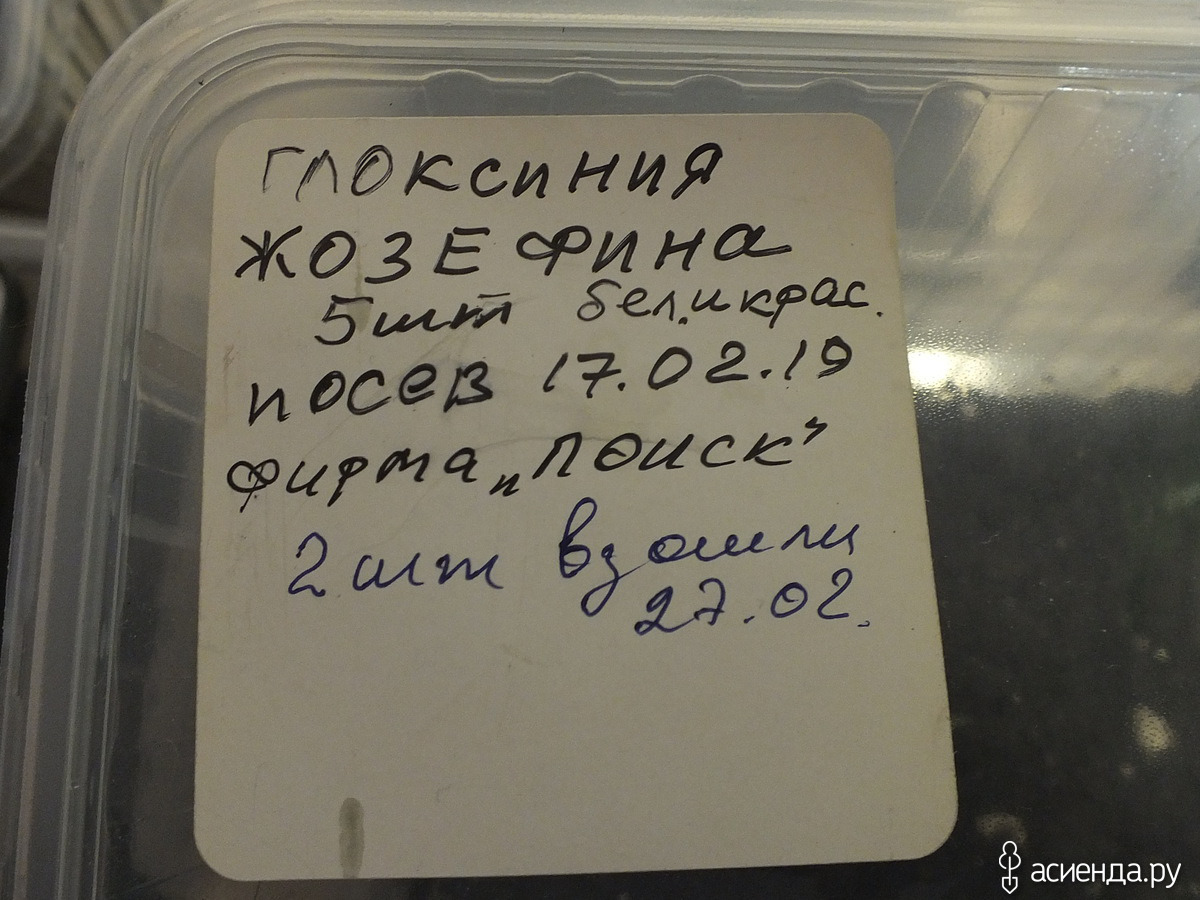 ГЛОКСИНИЯ
ЖОЗЕФИНА
5шт бел.икрас.
посев 17.02.19
фирма „ПОИСК"
2 шт взошли
27.02.
асиенда.ру